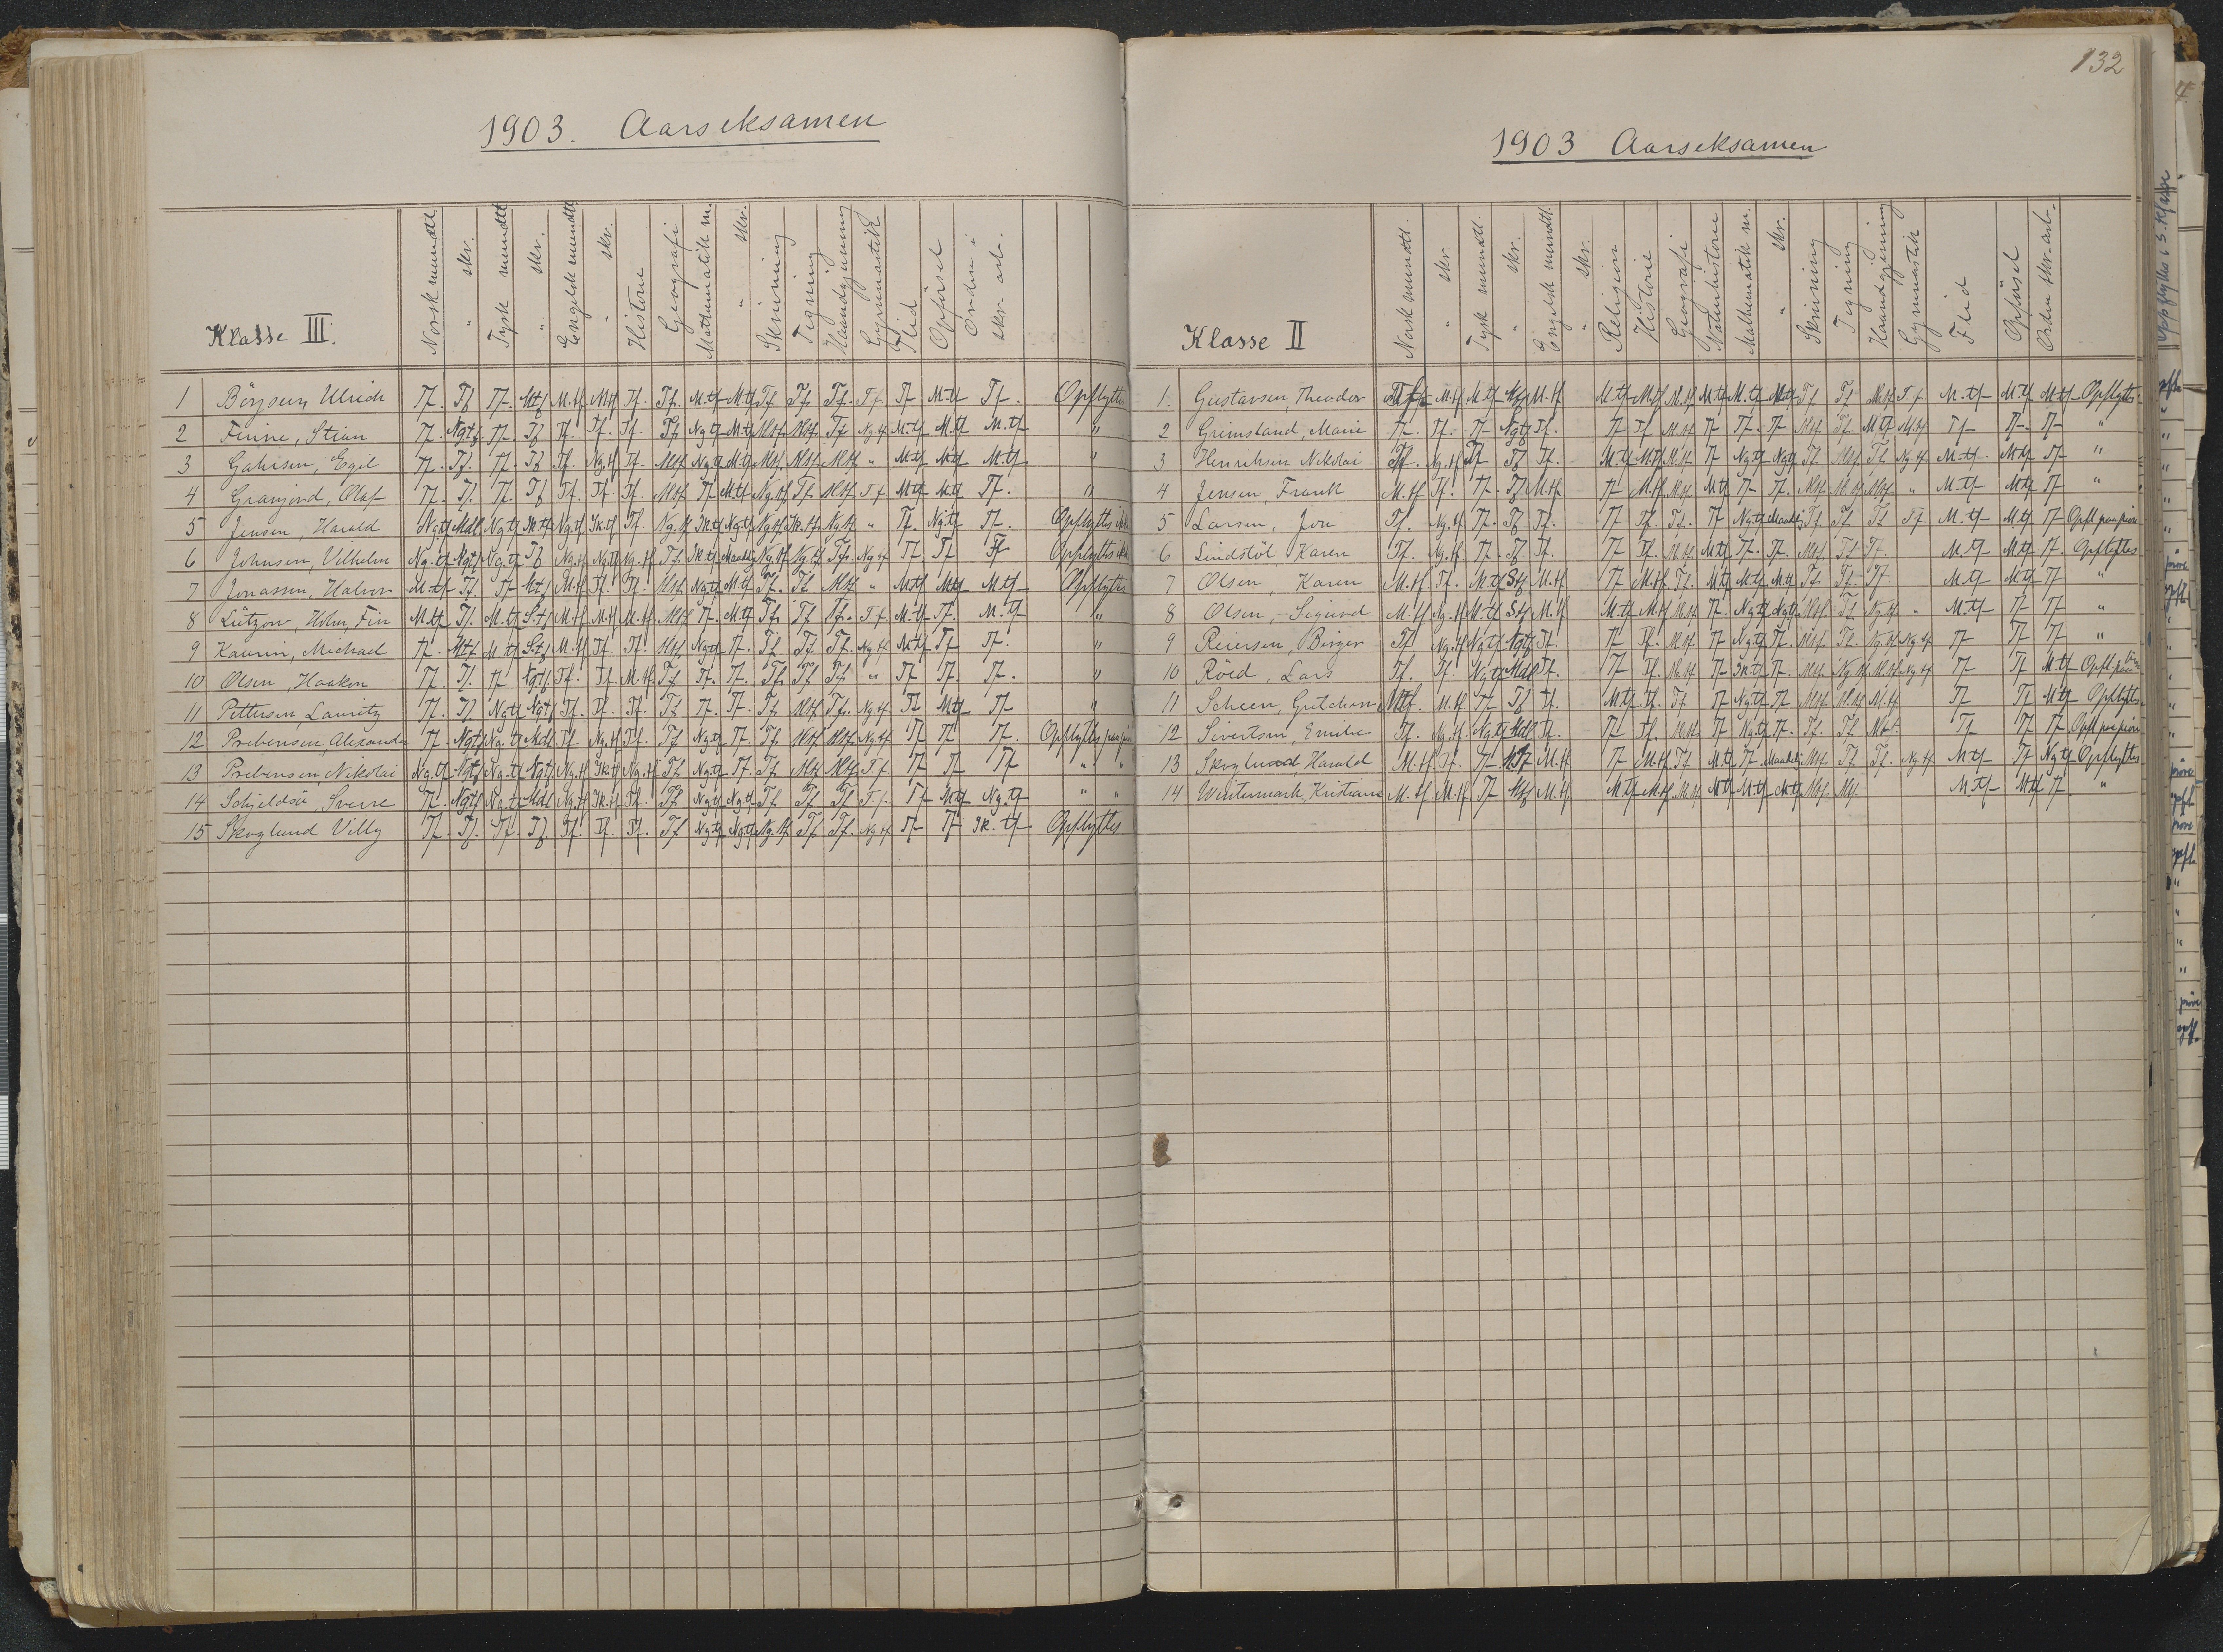 1903. Aarseksamen
Klasse III.
Norsk mundtl.
" skr.
Tysk mundtl
" skr.
Engelsk mundtl
" skr.
Historie
Geografi
Mathematik m.
" skr.
Skrivning
Tegning
Haandgjerning
Gymnastik
Flid
Opförsel
Orden i
skr. arb.
1 Börjesen, Ulrich Tf. Tf Tf. Mtf M.tf Mtf Tf. Tf. M.tf M.tf Tf. Tf Tf. Tf. Tf M.tf Tf. Opflyttes
2 Finne, Stian Tf. Ngtf. Tf. Tf Tf. Tf. Tf. Tf Ngtf M.tf Mtf. Mtf. Tf Ng.tf M.tf M.tf M.tf "
3 Egil Tf. Tf. Tf. Tf Tf. Ng.tf Tf. Mtf Ng.tf M.tf Mtf. Mtf. Mtf " M.tf M.tf M.tf "
4 Olaf Tf. Tf. Tf. Tf Tf. Tf. Tf. Mtf Tf M.tf Ng.tf Tf. Mtf Tf M.tf M.tf Tf. "
5 Jensen, Harald Ngtf Mdl. Ng.tf Ik.tf Ng.tf Ik.tf Tf. Ng.tf Ik.tf Ng.tf Ng.tf Ik.tf. Ng.tf " Tf. Ng.tf Tf. Opflyttes ikke
6 Johnsen, Vilhelm Ng.tf Ngtf Ng.tf Tf Ng.tf Ng.tf Ng.tf Tf. Ik.tf Maadlig Ng.tf Ng.tf Tf. Ng.tf Tf Tf Tf Opflyttes ikke
7 Jonassen, Halvor M.tf Tf. Tf Mtf M.tf Tf. Tf. Mtf Ngtf M.tf Tf. Tf. Mtf " M.tf M.tf M.tf Opflyttes
8 Lützow, Holm, Finn M.tf Tf. M.tf S.tf M.tf M.tf M.tf Mtf Tf. M.tf Tf. Tf Tf. Tf M.tf Tf. M.tf "
9 Kaurin, Michael Tf. Mtf M.tf S.tf M.tf Tf. Tf. Mtf Ngtf Tf. Tf Tf Tf. Ng.tf M.tf Tf Tf. "
10 Olsen, Haakon Tf. Tf. Tf Ngtf. Tf. Tf. M.tf. Tf Tf. Tf. Tf. Tf Tf " Tf Tf. Tf. "
11 Pettersen, Lauritz Tf. Tf. Ngtf Ngtf. Tf. Tf. Tf. Tf Tf. Tf. Tf. Mtf Tf. Ng.tf Tf M.tf Tf "
12 Prebensen, Alexander Tf Ngtf Ng.tf Mdl. Tf. Ng.tf Tf. Tf Ng.tf Tf. Tf. Mtf Mtf Ng.tf Tf Tf. Tf. Opflyttes paa
13 Prebensen, Nikolai Ng.tf Ngtf Ng.tf Ngtf Ng.tf Ik.tf Ng.tf Tf Ng.tf Tf. Tf Mtf Mtf. Tf Tf Tf Tf " "
14 Schjeldsöe, Sverre Tf. Ngtf Ng.tf Mdl Ng.tf Ik.tf Tf. Tf Ng.tf Ng.tf Tf Tf Tf Tf. Tf M.tf Ng.tf " "
15 Skoglund Villy Tf. Tf. Tf. Tf. Tf. Tf. Tf. Tf Ng.tf Ngtf Ng.tf Tf Tf. Ng.tf Tf Tf Ik.tf Opflyttes
132
1903 Aarseksamen
Klasse II
Norsk mundtl.
" skr.
Tysk mundtl.
" skr.
Engelsk mundtl.
" skr.
Religion
Historie
Geografi
Naturhistorie
Mathematik m.
" skr.
Skrivning
Tegning
Haandgjerning
Gymnastik
Flid
Opförsel
Orden skr. arb.
1. Gustavsen, Theodor M.tf M.tf Mtf M.tf M.tf M.tf M.tf M.tf M.tf M.tf Tf Tf Mtf Tf M.tf M.tf M.tf Opflyttes
2 Grimsland, Marie Tf. Tf. Tf Ngtf Tf. Tf Tf M.tf Tf Tf. Tf Mtf. Tf. M.tf M.tf Tf Tf. Tf "
3 Henriksen Nikolai Tf. Ng.tf Tf Tf Tf. M.tf M.tf M.tf Tf Ngtf Ngtf Tf Mtf Tf Ng.tf M.tf M.tf Tf "
4 Jensen, Frank M.tf Tf. Tf. Tf M.tf Tf M.tf M.tf M.tf Tf Tf. Mtf. M.tf Mtf " M.tf M.tf Tf "
5 Larsen, Tf. Ng.tf Tf. Tf Tf. Tf Tf. Tf. Tf Ngtf Maadelig Tf Tf Tf Tf M.tf M.tf Tf Opfl. paa pröve
6 Lindstöl, Karen Tf. Ng.tf. Tf. Tf Tf. Tf Tf. M.tf M.tf Tf. Tf. Mtf. Tf Tf. M.tf M.tf Tf. Opflyttes
7 Olsen, Karen M.tf. Tf. M.tf Stf. M.tf Tf M.tf Tf. M.tf M.tf M.tf Tf. Tf. Tf. M.tf M.tf Tf "
8 Olsen, Sigurd M.tf Ng.tf M.tf Stf M.tf M.tf M.tf M.tf Tf. Ng.tf Ngtf Mtf. Tf Ng.tf " M.tf Tf Tf "
9 Reiersen, Birger Tf. Ng.tf Ng.tf Ngtf Tf. Tf Tf. M.tf Tf Ng.tf Tf. Mtf. Tf. Ng.tf Ng.tf Tf Tf Tf "
10 Röed, Lars Tf. Tf. Ngtf Mdl Tf. Tf Tf. M.tf Tf Ik.tf Tf. Mtf Ng.tf M.tf Ng.tf Tf Tf M.tf Opfl. paa pröve
11 Scheen, Gretchen Mtf. M.tf Tf Tf Tf. M.tf Tf. Tf Tf Ng.tf Tf Mtf M.tf M.tf Tf Tf M.tf Opflyttes
12 Sivertsen, Emilie Tf. Ng.tf Ng.tf Mdl Tf. Tf Tf. M.tf Tf Ng.tf Tf. Tf. Tf. Mtf. Tf Tf Tf Opfl paa pröve
13 Skoglund, Harald M.tf Tf. Tf M.tf Tf M.tf Tf M.tf Tf Maadelig Mtf Tf Tf. Ng.tf M.tf Tf Ng.tf Opflyttes
14 Wintermark, Kristiane M.tf. M.tf. Tf Mtf M.tf. M.tf M.tf M.tf M.tf M.tf M.tf Mtf Mtf M.tf M.tf Tf "